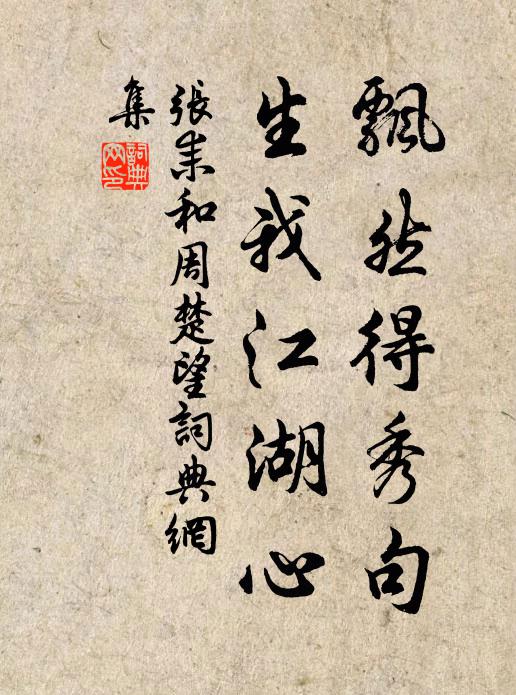 飄然得秀句
生我江湖心
張耒和周楚望詞典網
集
詞典網印